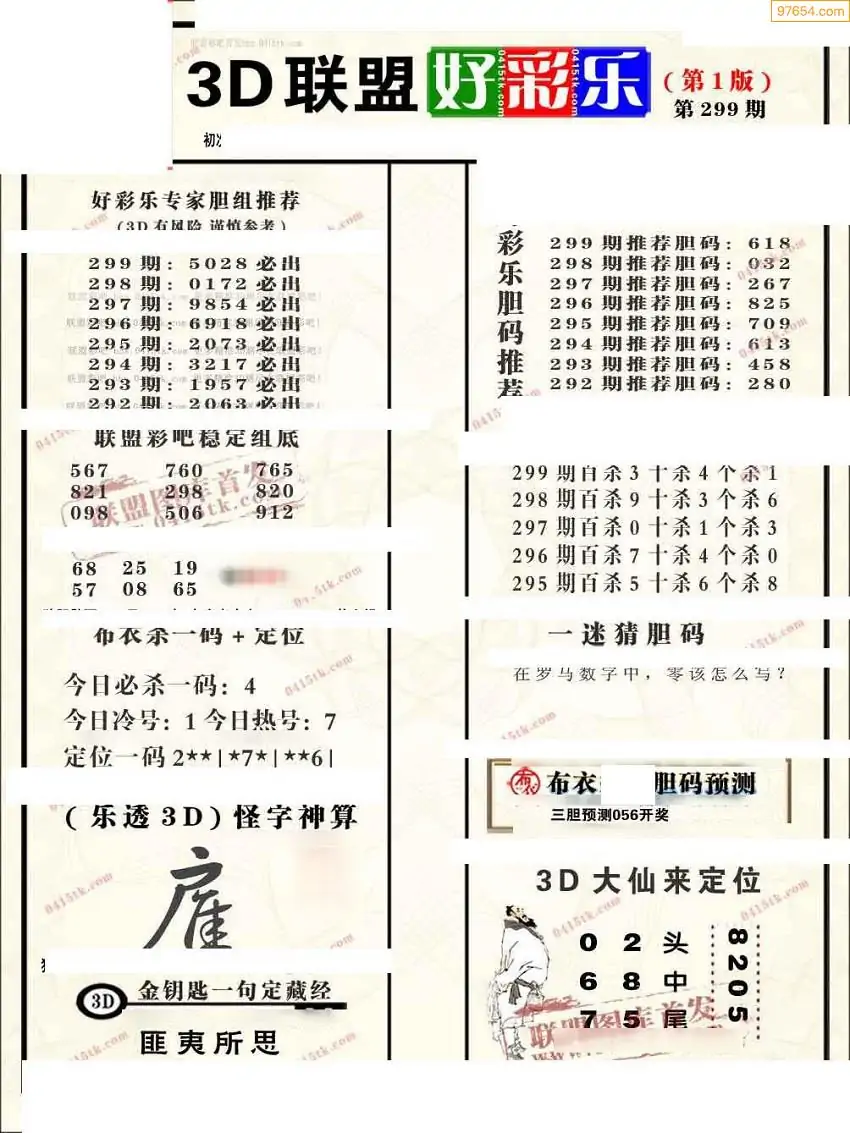 97654.com
3D联盟好彩乐
(第1版)
第299期
好彩乐专家胆组推荐
(3D有风险 谨慎参考)
299期: 5028必出
298期: 0172必出
297期: 9854必出
296期: 6918必出
295期: 2073必出
294期: 3217必出
293期: 1957必出
292期: 2063必出
联盟彩吧稳定组底
567 760 765
821 298 820
098 506 912
68 25 19
57 08 65
布衣杀一码+定位
今日必杀一码: 4
今日冷号: 1 今日热号: 7
定位一码2**|*7*|**6|
(乐透3D)怪字神算
3D 金钥匙一句定藏经
匪夷所思
彩乐胆码推荐
299期推荐胆码: 618
298期推荐胆码: 032
297期推荐胆码: 267
296期推荐胆码: 825
295期推荐胆码: 709
294期推荐胆码: 613
293期推荐胆码: 458
292期推荐胆码: 280
299期百杀3十杀4个杀1
298期百杀9十杀3个杀6
297期百杀0十杀1个杀3
296期百杀7十杀4个杀0
295期百杀5十杀6个杀8
一迷猜胆码
在罗马数字中，零该怎么写?
布衣 胆码预测
三胆预测056开奖
3D大仙来定位
0 2 头
6 8 中
7 5 尾
8205
联盟图库首发
0415tk.com